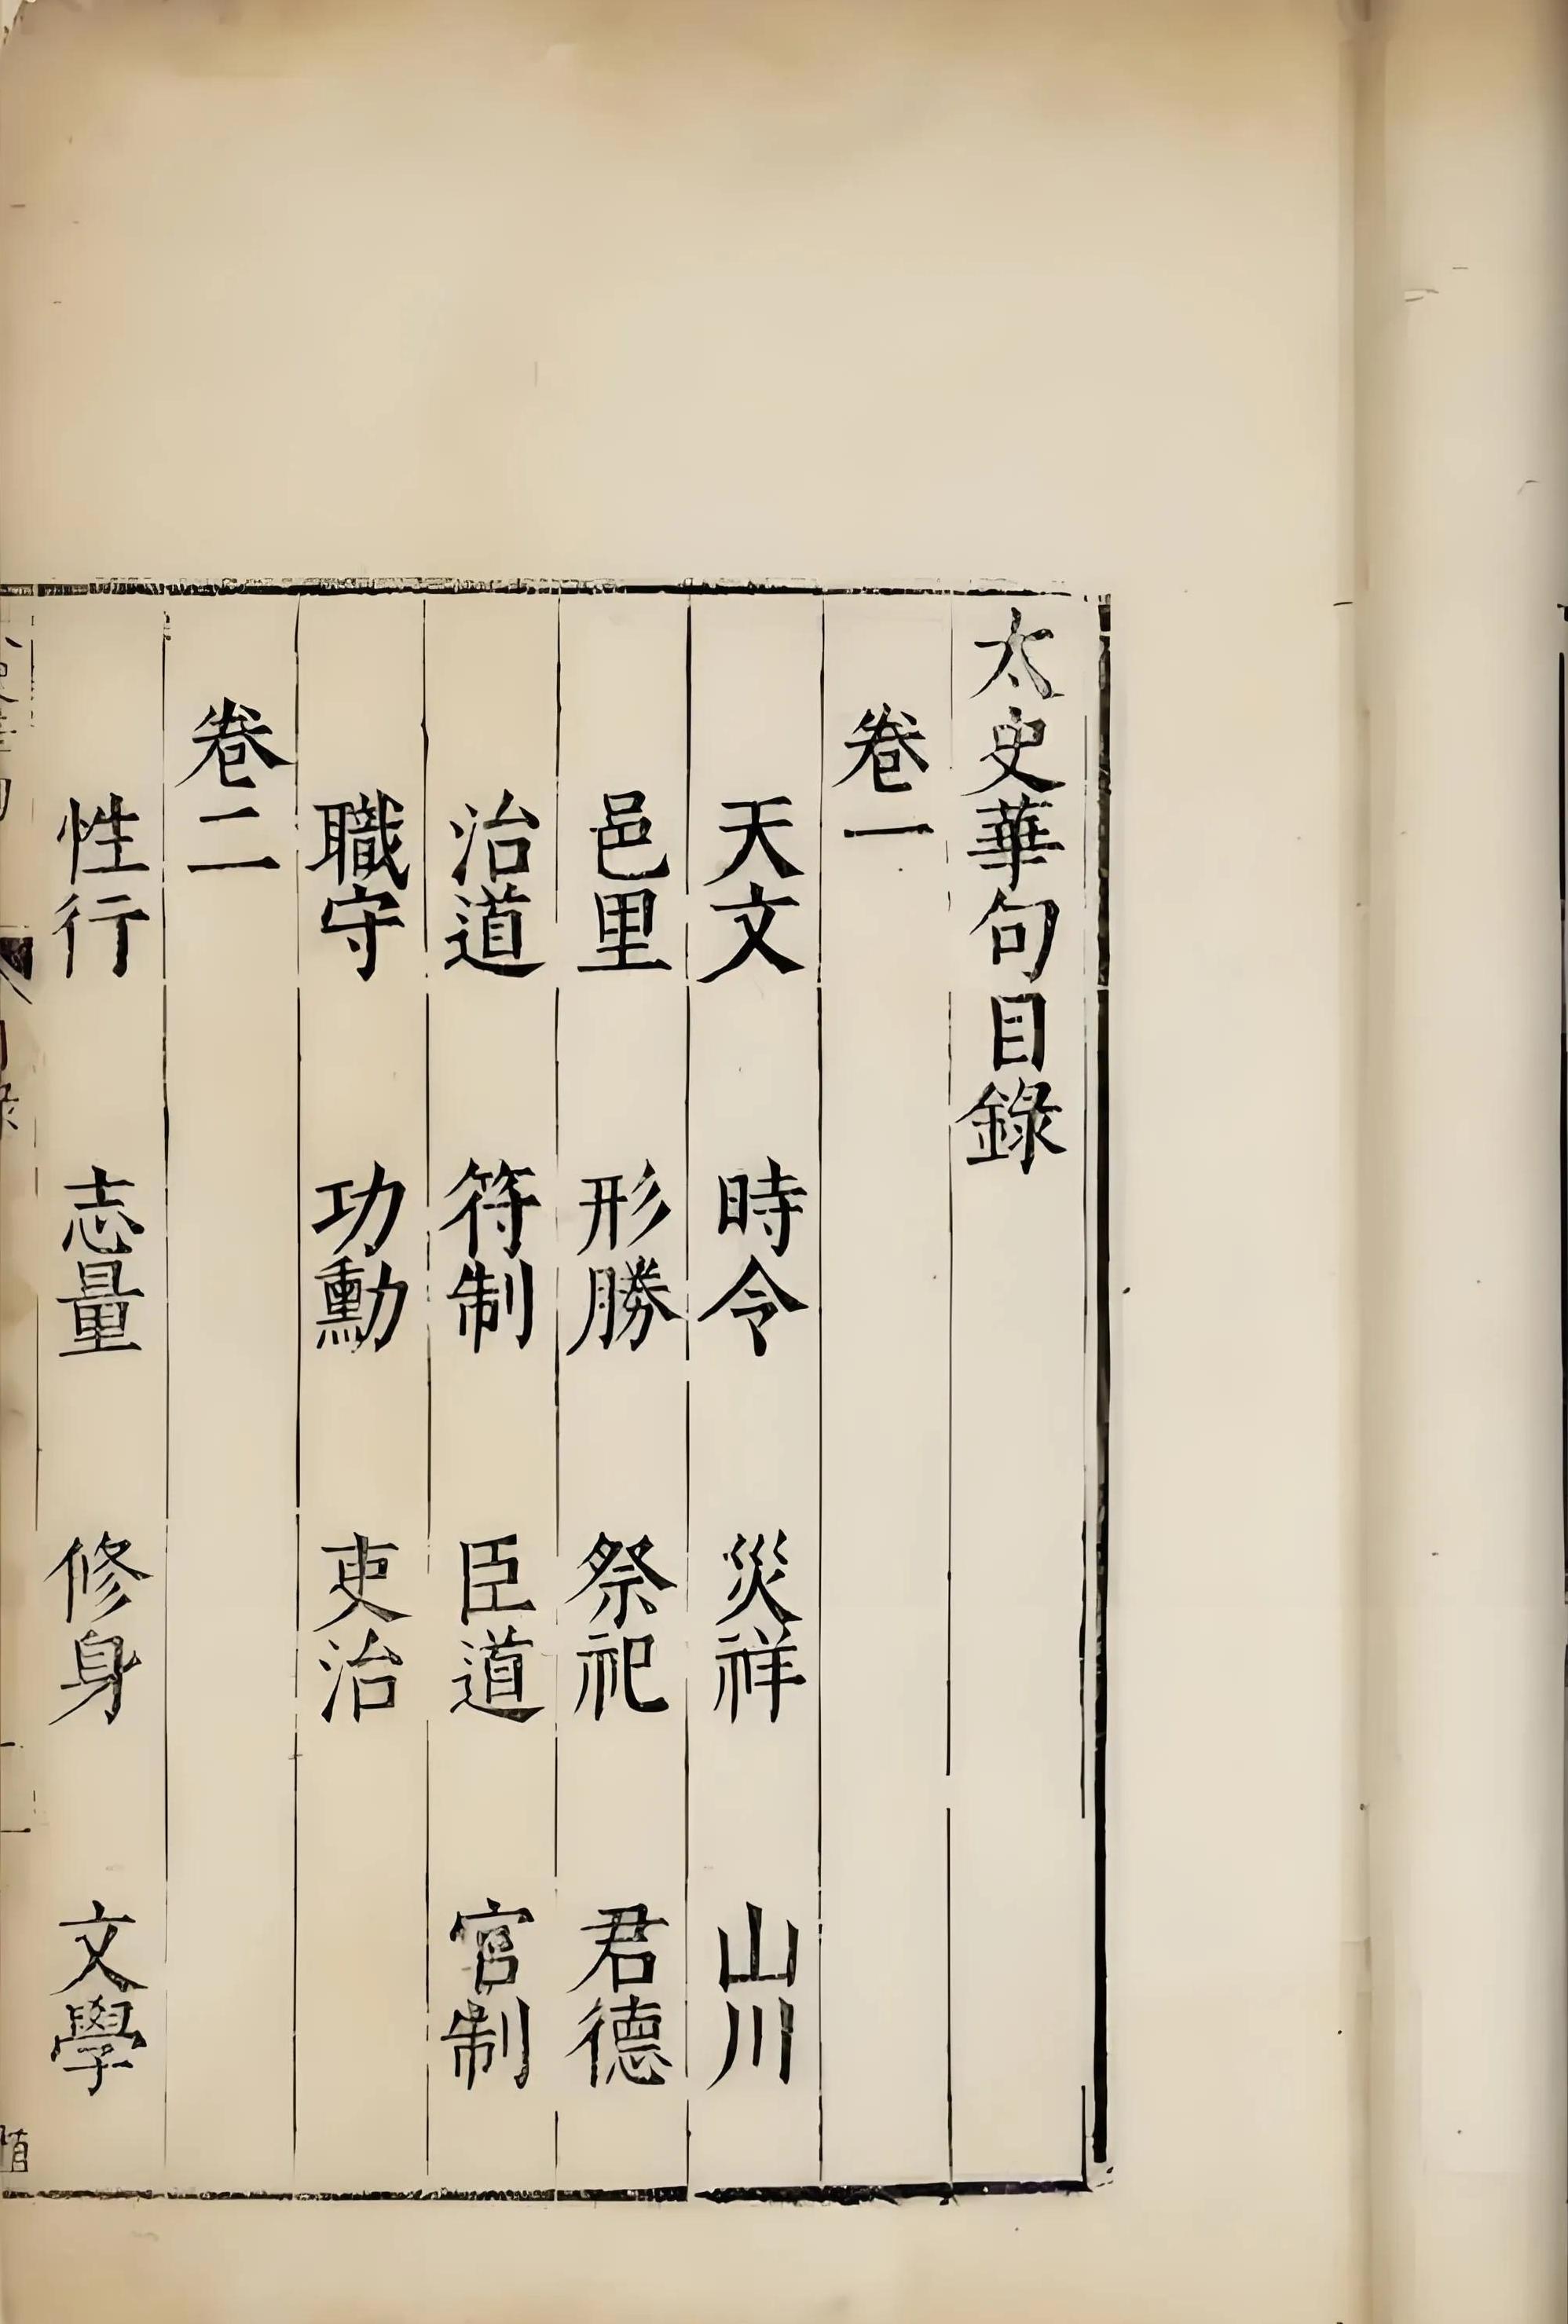 太史華句目錄
卷一
天文 時令 災祥 山川
邑里 形勝 祭祀 君德
治道 符制 臣道 官制
職守 功勳 吏治
卷二
性行 志量 修身 文學